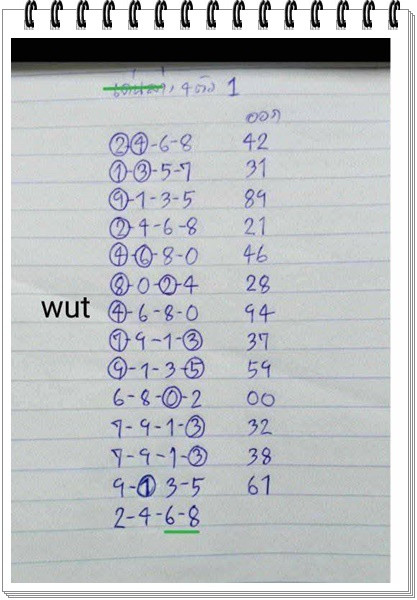 เด่นล่าง, 4 ตัว 1
ออก
2-4-6-8 42
1-3-5-7 31
9-1-3-5 89
2-4-6-8 21
4-6-8-0 46
8-0-2-4 28
wut 4-6-8-0 94
7-9-1-3 37
9-1-3-5 59
6-8-0-2 00
7-9-1-3 32
7-9-1-3 38
9-1 3-5 61
2-4-6-8